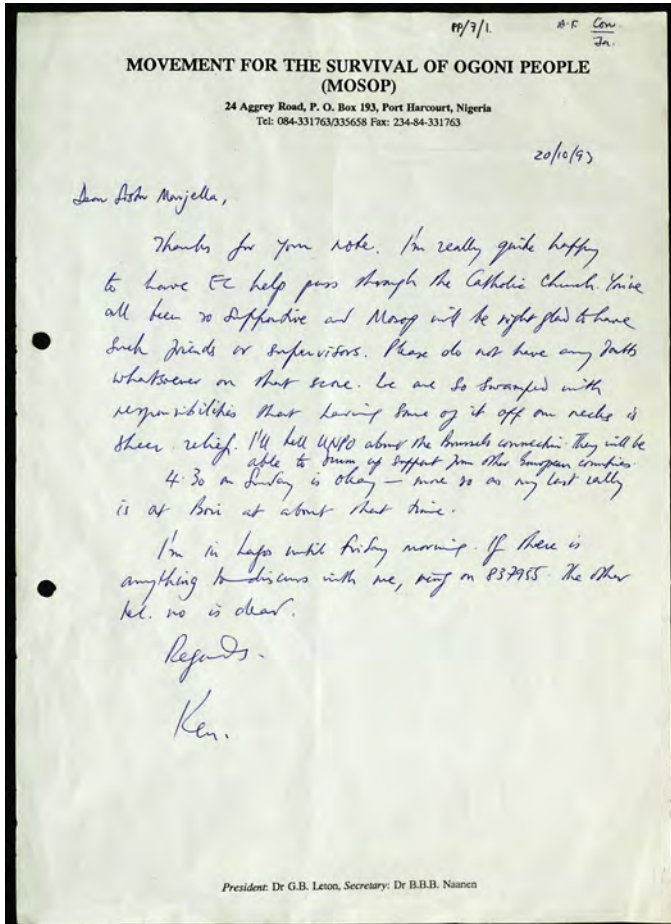 PP/7/1.
Con
MOVEMENT FOR THE SURVIVAL OF OGONI PEOPLE
(MOSOP)
24 Aggrey Road, P. O. Box 193, Port Harcourt, Nigeria
Tel: 084-331763/335658 Fax: 234-84-331763
20/10/93
Dear Sister Marjella,
Thanks for your note. I'm really quite happy
to have EC help pass through the Catholic Church. You've
all been so supportive and Mosop will be right glad to have
such friends or supervisors. Please do not have any doubts
whatsoever on that score. We are so swamped with
responsibilities that having some of it off our necks is
sheer relief. I'll tell UNPO about the Brussels connection. They will be
able to drum up support from other European countries.
4.30 on Sunday is okay – more so as my last rally
is at Bori at about that time.
I'm in Lagos until Friday morning. If there is
anything to discuss with me, ring on 837955. The other
tel. no is dead.
Regards.
Ken.
President: Dr G.B. Leton, Secretary: Dr B.B.B. Naanen